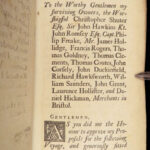 To the Worthy Gentlemen my
surviving Owners, the Wor-
shipful Christopher Shuter
Esq; Sir John Hawkins Kt.
John Romsey Esq; Capt. Philip
Freake, Mr. James Hol-
lidge, Francis Rogers, Tho-
mas Goldney, Thomas Cle-
ments, Thomas Coutes, John
Corsely, John Duckinfield,
Richard Hawksworth, Wil-
liam Saunders, John Grant,
Laurence Hollister, and
Daniel Hickman, Merchants
in Bristol.
GENTLEMEN,
AS you did me the Ho-
nour to approve my Pro-
posals for the following
Voyage, and generously fitted